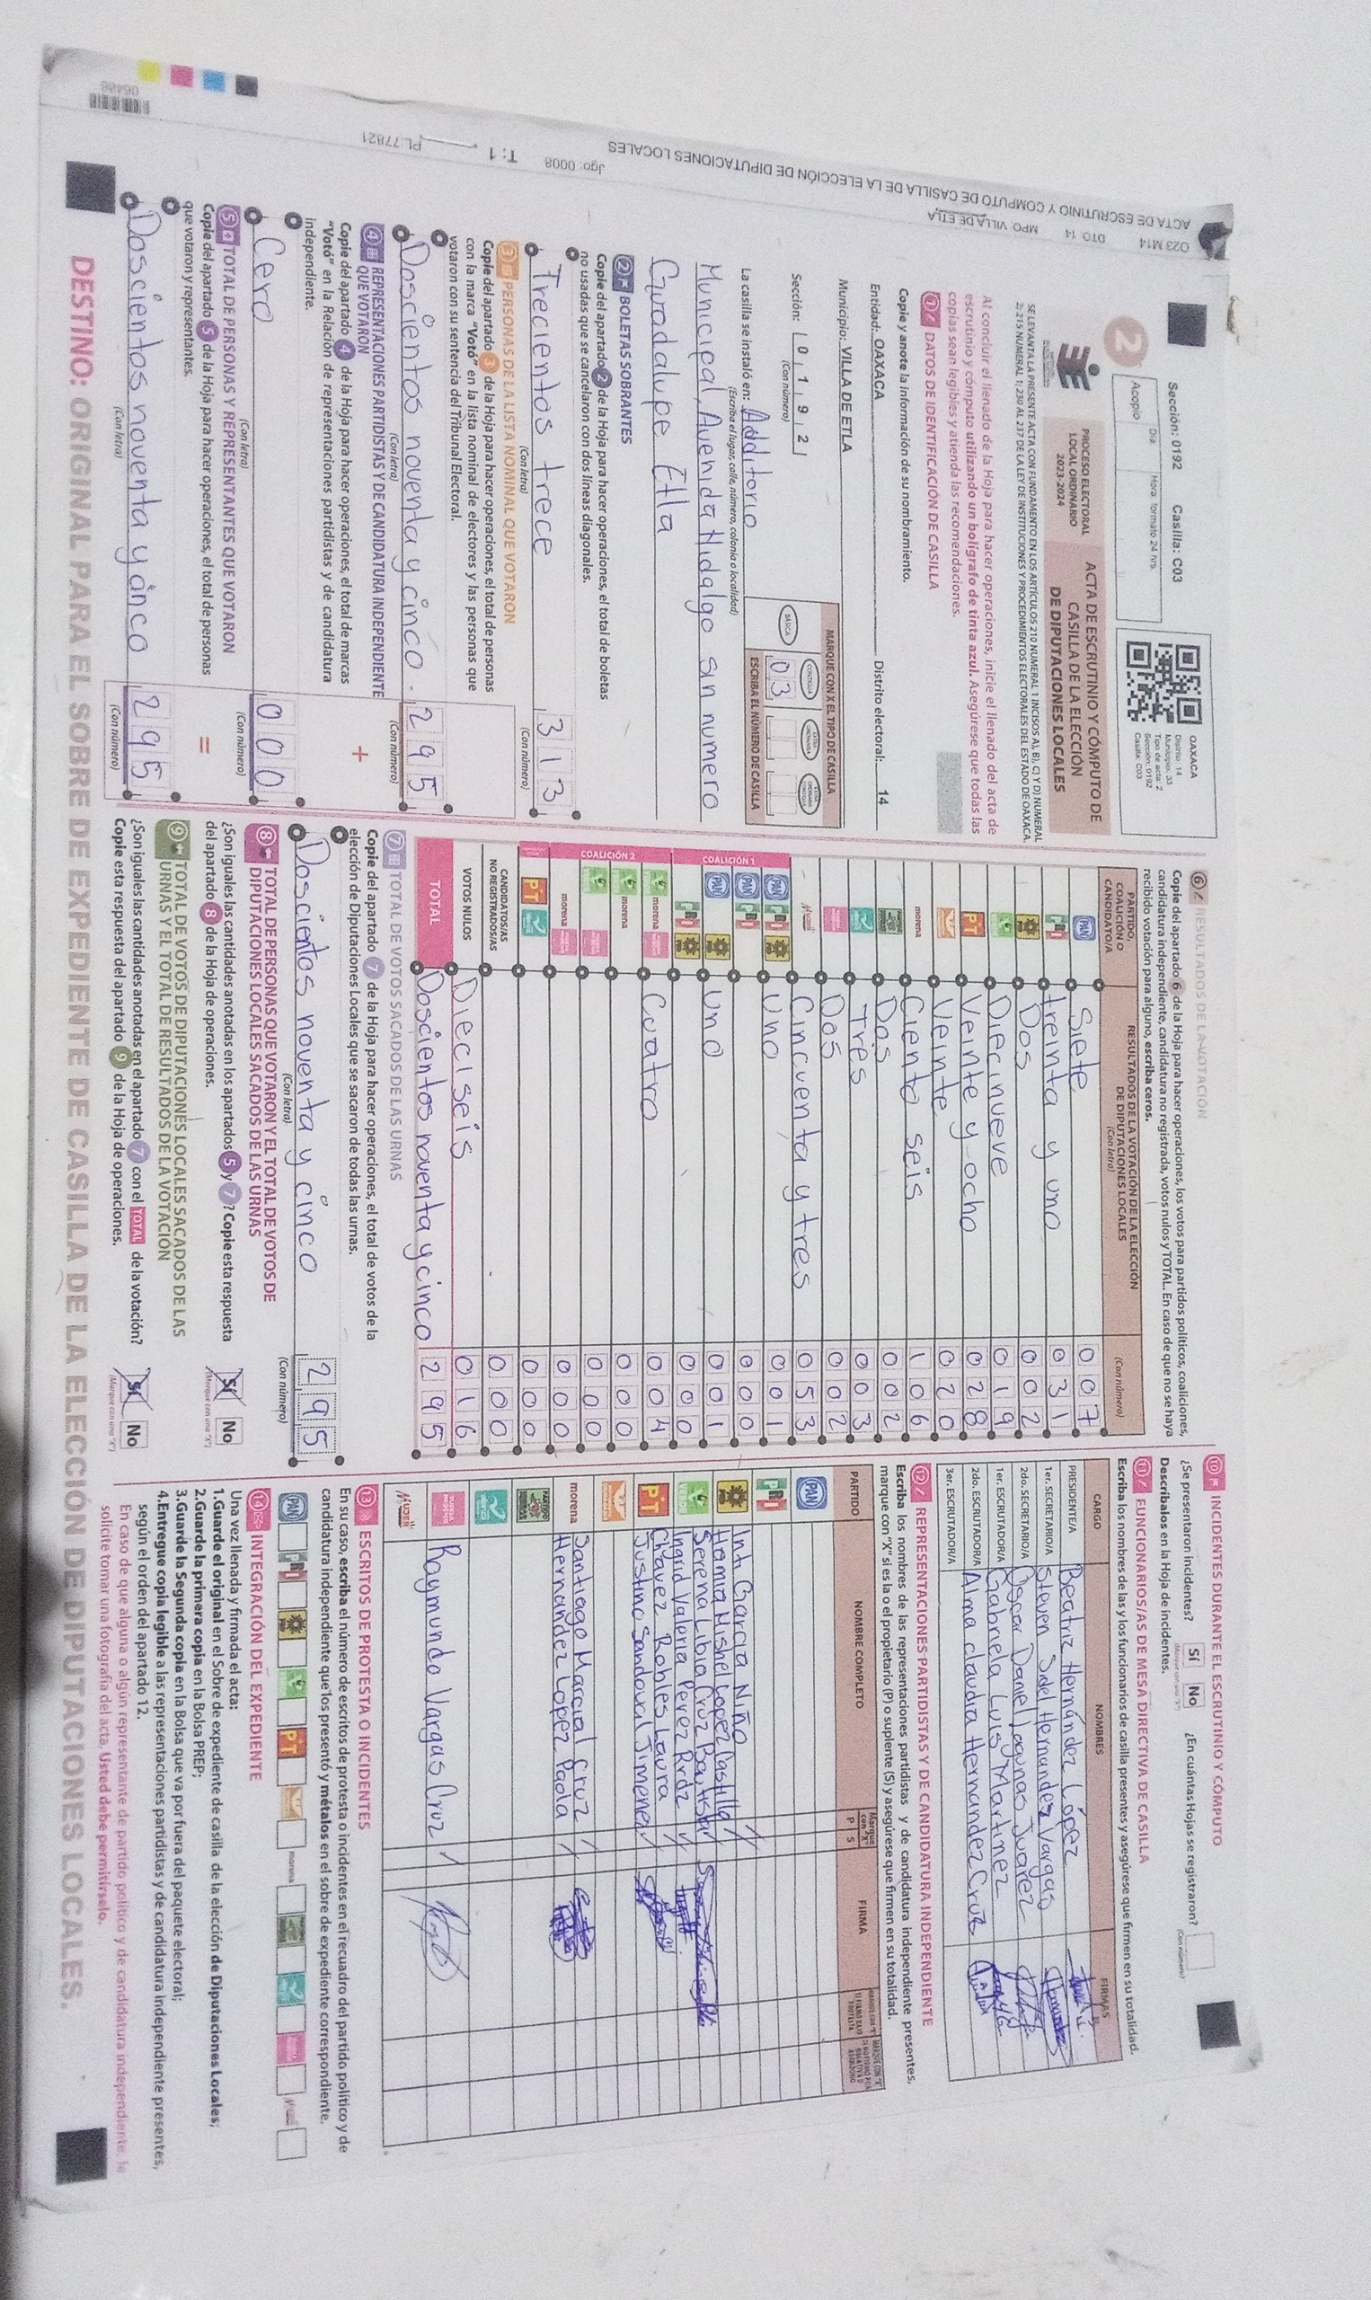 Sección: 0192 Casilla: C03
Día: Hora: formato 24 hrs.
2 Acopio
OAXACA
Distrito: 14
Municipio: 33
Tipo de acta: 2
Sección: 0192
Casilla: C03
PROCESO ELECTORAL
LOCAL ORDINARIO
2023-2024
ACTA DE ESCRUTINIO Y CÓMPUTO DE
CASILLA DE LA ELECCIÓN
DE DIPUTACIONES LOCALES
SE LEVANTA LA PRESENTE ACTA CON FUNDAMENTO EN LOS ARTÍCULOS 210 NUMERAL 1 INCISOS A), B), C) Y D) NUMERAL
2; 215 NUMERAL 1; 230 AL 237 DE LA LEY DE INSTITUCIONES Y PROCEDIMIENTOS ELECTORALES DEL ESTADO DE OAXACA.
Al concluir el llenado de la Hoja para hacer operaciones, inicie el llenado del acta de
escrutinio y cómputo utilizando un bolígrafo de tinta azul. Asegúrese que todas las
copias sean legibles y atienda las recomendaciones.
1 DATOS DE IDENTIFICACIÓN DE CASILLA
Copie y anote la información de su nombramiento.
Entidad: OAXACA Distrito electoral: 14
Municipio: VILLA DE ETLA
Sección: 0 1 9 2
(Con número)
MARQUE CON X EL TIPO DE CASILLA
BÁSICA
03
ESCRIBA EL NÚMERO DE CASILLA
La casilla se instaló en: Additorio
(Escriba el lugar, calle, número, colonia o localidad)
Municipal, Avenida Hidalgo sin numero
Guadalupe Etla
2 BOLETAS SOBRANTES
Copie del apartado 2 de la Hoja para hacer operaciones, el total de boletas
no usadas que se cancelaron con dos líneas diagonales.
Trecientos trece 313
(Con letra) (Con número)
3 PERSONAS DE LA LISTA NOMINAL QUE VOTARON
Copie del apartado 3 de la Hoja para hacer operaciones, el total de personas
con la marca "Votó" en la lista nominal de electores y las personas que
votaron con su sentencia del Tribunal Electoral.
Doscientos noventa y cinco. 295
(Con letra) (Con número)
4 REPRESENTACIONES PARTIDISTAS Y DE CANDIDATURA INDEPENDIENTE
QUE VOTARON +
Copie del apartado 4 de la Hoja para hacer operaciones, el total de marcas
"Votó" en la Relación de representaciones partidistas y de candidatura
independiente.
Cero 000
(Con letra) (Con número)
5 TOTAL DE PERSONAS Y REPRESENTANTES QUE VOTARON
Copie del apartado 5 de la Hoja para hacer operaciones, el total de personas
que votaron y representantes. =
Doscientos noventa y cinco 295
(Con letra) (Con número)
6 RESULTADOS DE LA VOTACIÓN
Copie del apartado 6 de la Hoja para hacer operaciones, los votos para partidos políticos, coaliciones,
candidatura independiente, candidatura no registrada, votos nulos y TOTAL. En caso de que no se haya
recibido votación para alguno, escriba ceros.
PARTIDO, COALICIÓN O CANDIDATO/A
RESULTADOS DE LA VOTACIÓN DE LA ELECCIÓN
DE DIPUTACIONES LOCALES
(Con letra) (Con número)
PAN Siete 007
PRI treinta y uno 031
PRD Dos 002
Diecinueve 019
PT Veinte y ocho 028
Veinte 020
morena Ciento seis 106
Dos 002
Tres 003
Dos 002
Cincuenta y tres 053
COALICIÓN 1
PAN PRI PRD Uno 001
PAN PRI 000
PAN PRD uno 001
PRI PRD 000
COALICIÓN 2
morena Cuatro 004
morena 000
000
morena 000
PT 000
CANDIDATOS/AS
NO REGISTRADOS/AS 000
VOTOS NULOS Dieciseis 016
TOTAL Doscientos noventa y cinco 295
7 TOTAL DE VOTOS SACADOS DE LAS URNAS
Copie del apartado 7 de la Hoja para hacer operaciones, el total de votos de la
elección de Diputaciones Locales que se sacaron de todas las urnas.
Doscientos noventa y cinco 295
(Con letra) (Con número)
8 TOTAL DE PERSONAS QUE VOTARON Y EL TOTAL DE VOTOS DE
DIPUTACIONES LOCALES SACADOS DE LAS URNAS
¿Son iguales las cantidades anotadas en los apartados 5 y 7? Copie esta respuesta
del apartado 8 de la Hoja de operaciones.
Sí No
(Marque con una "X")
9 TOTAL DE VOTOS DE DIPUTACIONES LOCALES SACADOS DE LAS
URNAS Y EL TOTAL DE RESULTADOS DE LA VOTACIÓN
¿Son iguales las cantidades anotadas en el apartado 7 con el TOTAL de la votación?
Copie esta respuesta del apartado 9 de la Hoja de operaciones.
Sí No
(Marque con una "X")
10 INCIDENTES DURANTE EL ESCRUTINIO Y CÓMPUTO
¿Se presentaron incidentes? Sí No ¿En cuántas Hojas se registraron?
(Marque con una "X") (Con número)
Descríbalos en la Hoja de incidentes.
11 FUNCIONARIOS/AS DE MESA DIRECTIVA DE CASILLA
Escriba los nombres de las y los funcionarios de casilla presentes y asegúrese que firmen en su totalidad.
CARGO NOMBRES FIRMAS
PRESIDENTE/A Beatriz Hernández López
1er. SECRETARIO/A Steven Sadel Hernandez Vargas
2do. SECRETARIO/A Oscar Daniel Lagunas Juarez
1er. ESCRUTADOR/A Gabriela Luis Martinez
2do. ESCRUTADOR/A Alma claudia Hernandez Cruz
3er. ESCRUTADOR/A
12 REPRESENTACIONES PARTIDISTAS Y DE CANDIDATURA INDEPENDIENTE
Escriba los nombres de las representaciones partidistas y de candidatura independiente presentes,
marque con "X" si es la o el propietario (P) o suplente (S) y asegúrese que firmen en su totalidad.
PARTIDO NOMBRE COMPLETO Marque con "X" P S FIRMA
PAN
PRI
PRD Garcia Niño
Lopez Castillo
Serena Libia Cruz Bautista
Ingrid Valeria Perez Rrdz
PT Chavez Robles Laura
Justino Sandoval Jimenez
morena Santiago Marcial Cruz
Hernandez Lopez Paola
Raymundo Vargas Cruz
13 ESCRITOS DE PROTESTA O INCIDENTES
En su caso, escriba el número de escritos de protesta o incidentes en el recuadro del partido político y de
candidatura independiente que los presentó y métalos en el sobre de expediente correspondiente.
PAN PRI PRD PT morena
14 INTEGRACIÓN DEL EXPEDIENTE
Una vez llenada y firmada el acta:
1.Guarde el original en el Sobre de expediente de casilla de la elección de Diputaciones Locales;
2.Guarde la primera copia en la Bolsa PREP;
3.Guarde la Segunda copia en la Bolsa que va por fuera del paquete electoral;
4.Entregue copia legible a las representaciones partidistas y de candidatura independiente presentes,
según el orden del apartado 12.
En caso de que alguna o algún representante de partido político y de candidatura independiente, le
solicite tomar una fotografía del acta, Usted debe permitírselo.
DESTINO: ORIGINAL PARA EL SOBRE DE EXPEDIENTE DE CASILLA DE LA ELECCIÓN DE DIPUTACIONES LOCALES.
023 M14 DTO 14 MPO VILLA DE ETLA
ACTA DE ESCRUTINIO Y COMPUTO DE CASILLA DE LA ELECCIÓN DE DIPUTACIONES LOCALES
Jgo: 0008 T: 1 PL.77821
06406